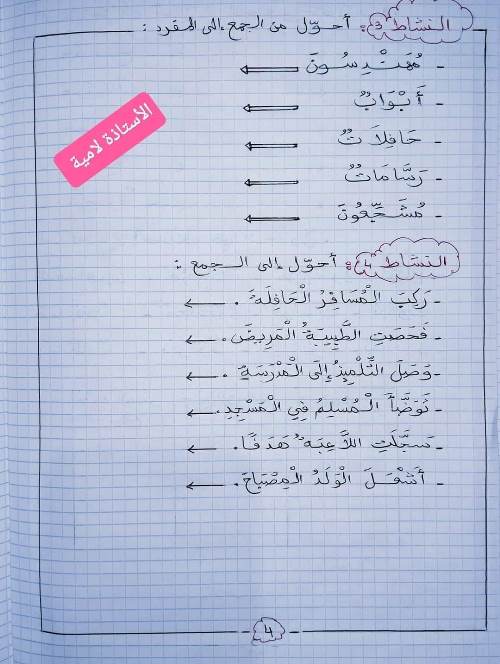 النشاط 3: أحوّل من الجمع إلى المفرد :
- مُهَنْدِسُونَ
- أَبْوَابٌ
- حَافِلَاتٌ
- رَسَّامَاتٌ
- مُشَجِّعُونَ
الأستاذة لامية
النشاط 4: أحوّل إلى الجمع :
- رَكِبَ الْمُسَافِرُ الْحَافِلَةَ .
- فَحَصَتِ الطَّبِيبَةُ الْمَرِيضَ .
- وَصَلَ التِّلْمِيذُ إِلَى الْمَدْرَسَةِ .
- تَوَضَّأَ الْمُسْلِمُ فِي الْمَسْجِدِ .
- سَجَّلَتِ اللَّاعِبَةُ هَدَفًا .
- أَشْعَلَ الْوَلَدُ الْمِصْبَاحَ .
4